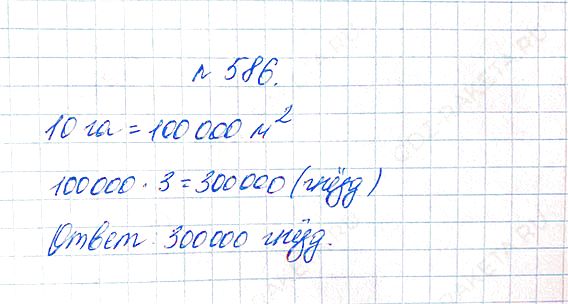 № 586.
10 га = 100 000 м²
100000 · 3 = 300000 (гнёзд)
Ответ: 300000 гнёзд.
GDZ-RAKETA.RU